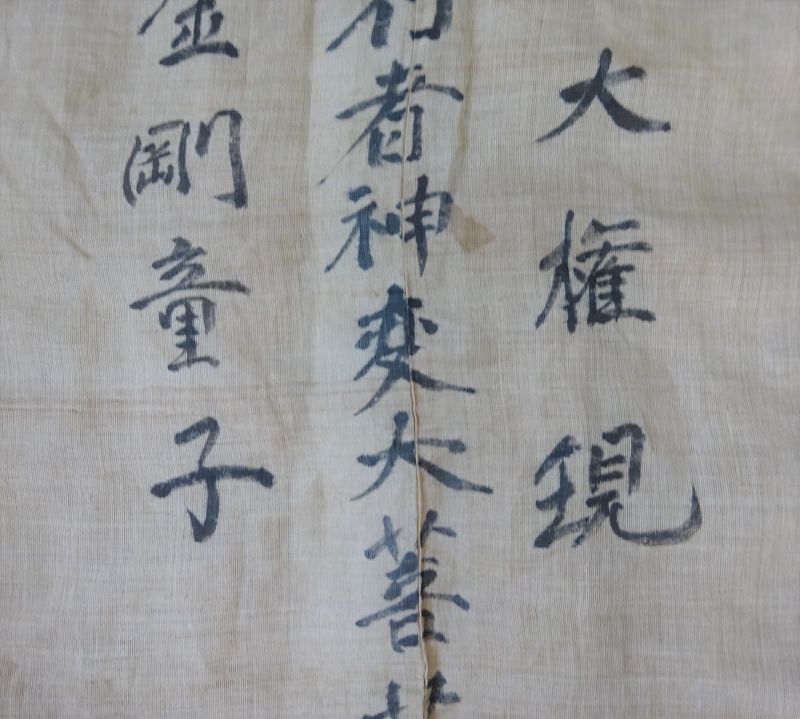 大権現
行者神変大菩
金剛童子